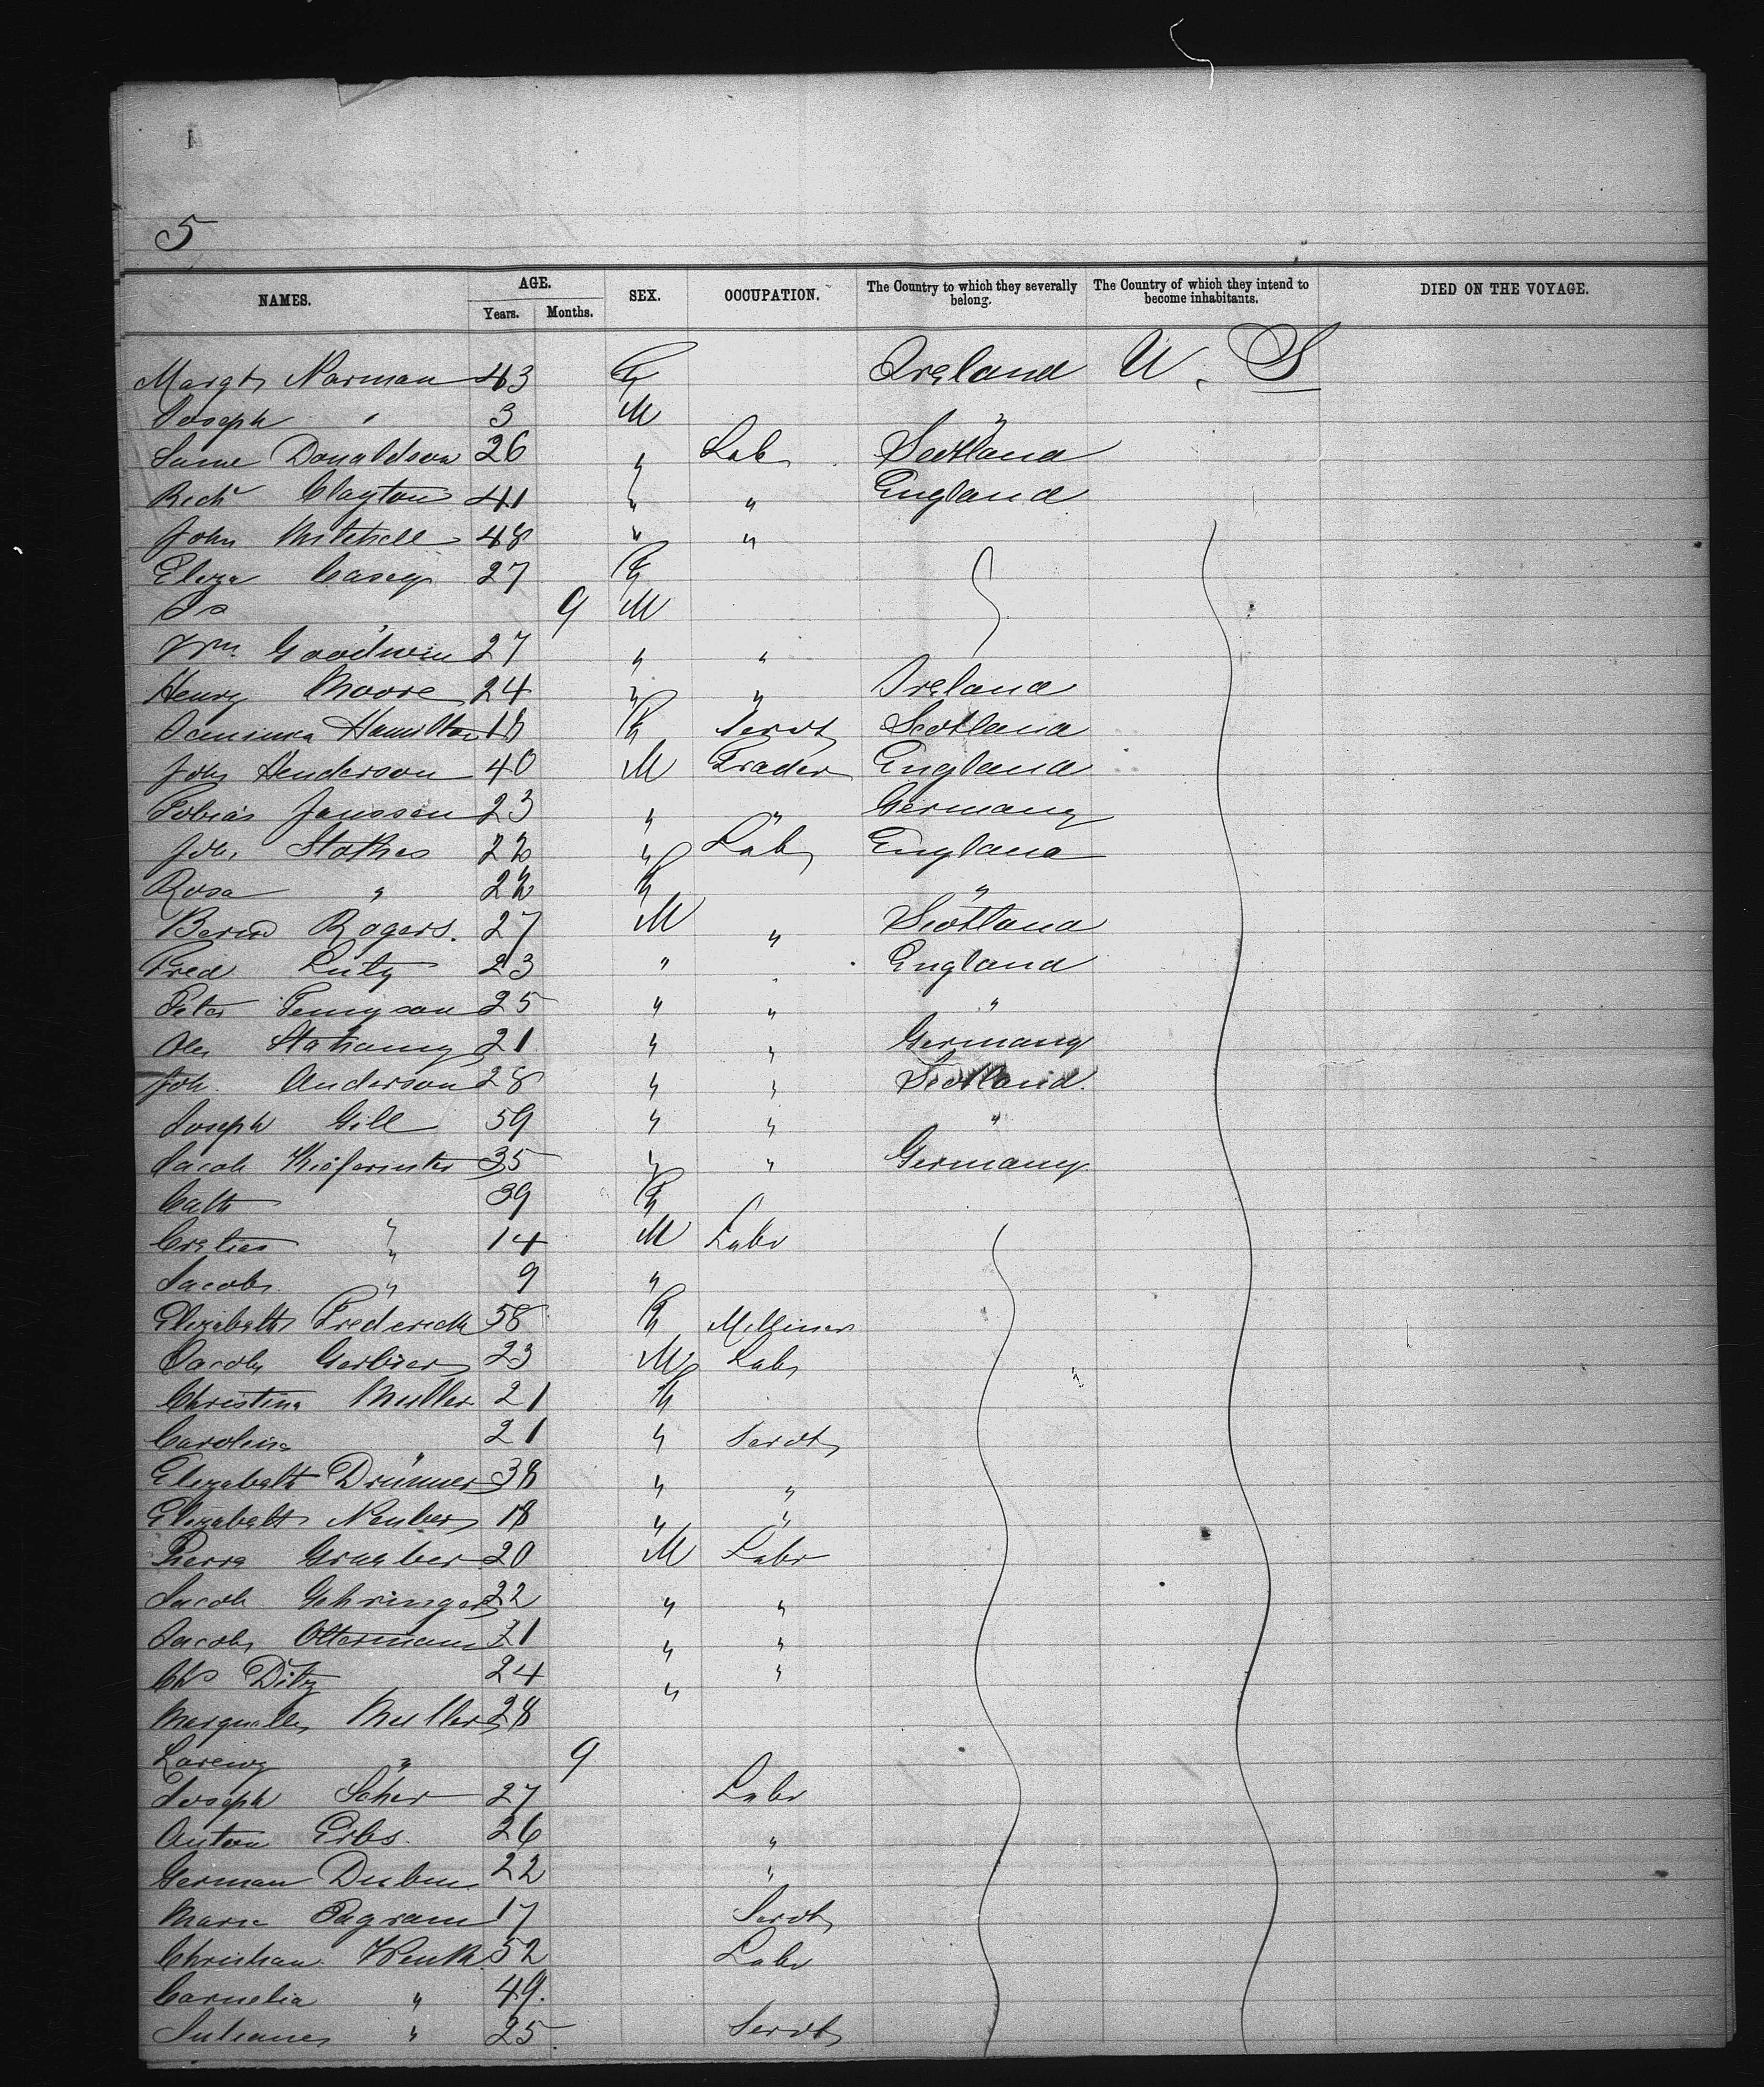 5
NAMES. AGE. Years. Months. SEX. OCCUPATION. The Country to which they severally belong. The Country of which they intend to become inhabitants. DIED ON THE VOYAGE.
Margt Norman 43 F Ireland U. S
Joseph " 3 M "
Donaldson 26 " Lab Scotland
Richd Clayton 41 " " England
John Mitchell 48 " "
Eliza Casey 27 F
Js " 9 M
Wm Goodwin 27 " "
Henry Moore 24 " " Ireland
Jemima Hamilton 18 F Servt Scotland
John Henderson 40 M Trader England
Tobias Janssen 23 " " Germany
Joh. Stokes 22 " Lab England
Rosa " 22 F "
Bernd Rogers. 27 M " Scotland
Fred Luty 23 " England
Peter 25 " " "
21 " " Germany
Joh. Anderson 28 " " Scotland
Joseph Gill 59 " " "
Jacob 35 " " Germany
Cath " 39 F
" 14 M Labr
Jacob " 9 "
Elizabeth Frederick 58 F Milliner
Jacob Gerbier 23 M Lab
Christina Muller 21 F
Carolina " 21 " Servt
Elizabeth Drummer 38 " "
Elizabeth Neuber 18 " "
Pierre Graaber 20 M Labr
Jacob Gehringer 22 " "
Jacob Ottermann 31 " "
Chs Ditz 24 " "
Muller 28
Lorenz " 9
Joseph Scher 27 Labr
Anton Erbs. 26 "
German 22 "
Marie Pagram 17 Servt
Christian Wenk 52 Labr
Cornelia " 49.
Juliane " 25 Servt